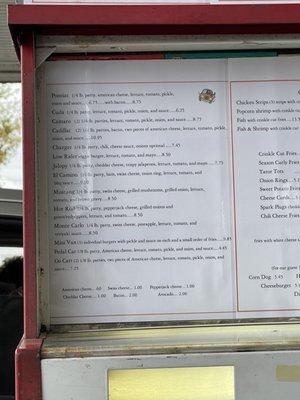 Pontiac 1/4 lb. patty, american cheese, lettuce, tomato, pickle,
onion and sauce.....6.75.....with bacon.....8.75
Cuda 1/4 lb. patty, lettuce, tomato, pickle, onion and sauce.....6.25
Camaro (2) 1/4 lb. patties, lettuce, tomato, pickle, onion, and sauce.....8.75
Cadillac (2) 1/4 lb. patties, bacon, two pieces of american cheese, lettuce, tomato, pickle,
onion, and sauce.....10.95
Charger 1/4 lb. patty, chili, cheese sauce, onions optional.....7.45
Low Rider veggie burger, lettuce, tomato, and mayo.....8.50
Jalopy 1/4 lb. patty, cheese, crispy jalapenos, lettuce, tomato, and mayo.....7.75
El Camino 1/4 lb. patty, ham, swiss cheese, onion ring, lettuce, tomato, and
bbq sauce.....
Mustang 1/4 lb. patty, swiss cheese, grilled mushrooms, grilled onion, lettuce,
tomato, and honey 8.50
Hot Rod 1/4 lb. patty, pepperjack cheese, grilled onions and
peppers, lettuce, and tomato.....8.50
Monte Carlo 1/4 lb. patty, swiss cheese, pineapple, lettuce, tomato, and
teriyaki sauce.....8.50
Mini Van (3) individual burgers with pickle and sauce on each and a small order of fries.....9.85
Pedal Car 1/8 lb. patty, American cheese, lettuce, tomato, pickle, onion, and sauce.....4.45
Go Cart (2) 1/8 lb. patties, two pieces of American cheese, lettuce, tomato, pickle, onion, and
sauce.....7.25
American cheese.....60 Swiss cheese.. 1.00 Pepperjack cheese.... 1.00
Cheddar Cheese.... 1.00 Bacon... 2.00 Avocado.. 2.00
Chicken Strips (3) strips with
Popcorn shrimp with
Fish with crinkle cut fries
Fish & Shrimp with
Crinkle Cut Fries
Season Curly Fries
Tator Tots
Onion Rings
Sweet Potato Fries
Cheese Curds
Spark Plugs
Chili Cheese Fries
fries with white cheese
(for our guest
Corn Dog 5.45
Cheeseburger 5.